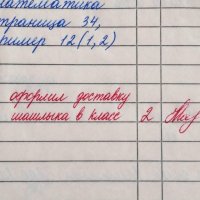 математика
страница 34,
пример 12(1,2)
оформил доставку
шашлыка в класс 2